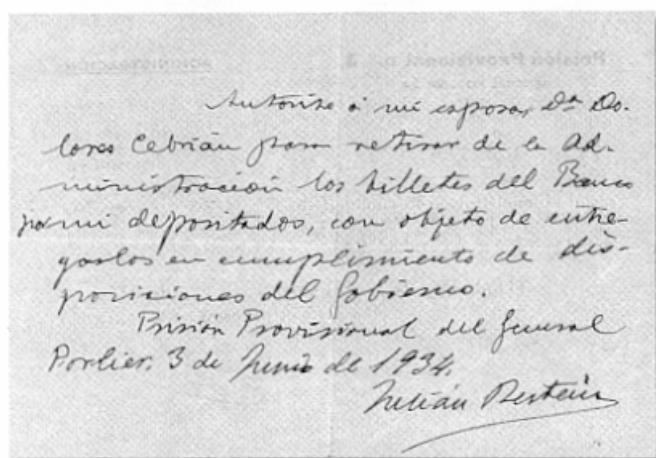 Autorizo a mi esposa, Dª Do-
lores Cebrián para retirar de la Ad-
ministración los billetes del Banco
por mi depositados, con objeto de entre-
garlos en cumplimiento de dis-
posiciones del Gobierno.
Prisión Provisional del General
Porlier, 3 de Junio de 1939.
Julián Besteiro